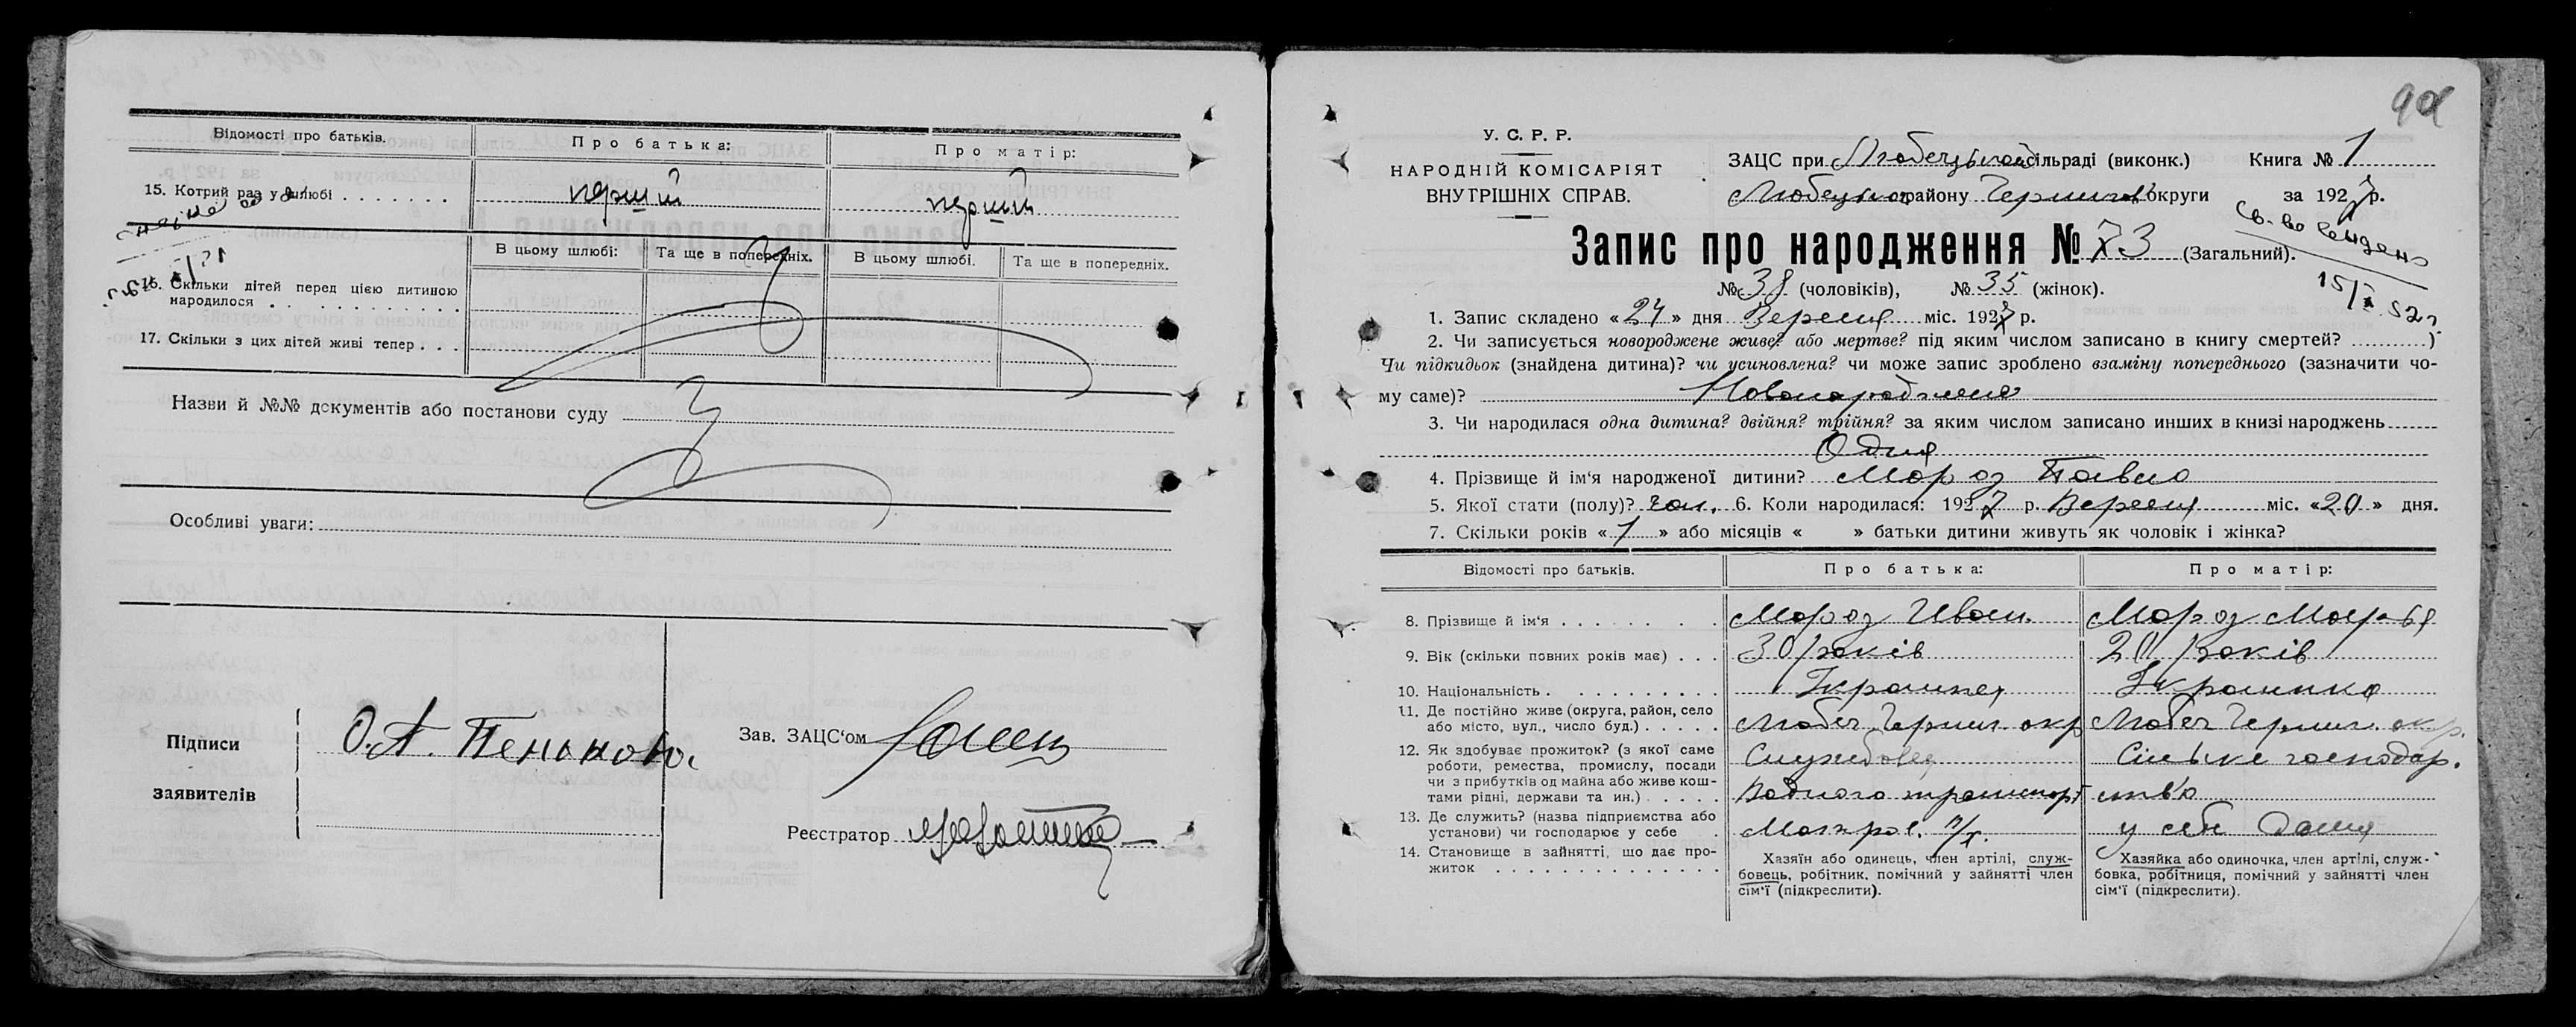 Відомості про батьків.
Про батька:
Про матір:
15. Котрий раз у шлюбі
перший
перший
В цьому шлюбі:
Та ще в попередніх.
В цьому шлюбі.
Та ще в попередніх.
16. Скільки дітей перед цією дитиною
народилося
17. Скільки з цих дітей живі тепер
Назви й №№ документів або постанови суду
Особливі уваги:
Підписи
заявителів
О. А.
Зав. ЗАЦС'ом
Реєстратор
У. С. Р. Р.
НАРОДНІЙ КОМІСАРІЯТ
ВНУТРІШНІХ СПРАВ.
ЗАЦС при Любецькій сільраді (виконк.) Книга № 1
Любецького району Чернигів округи за 1927 р.
Запис про народження № 73 (Загальний).
15/X 52 г.
№ 38 (чоловіків), № 35 (жінок).
1. Запис складено «24» дня Вересня міс. 1927 р.
2. Чи записується новороджене живе? або мертве? під яким числом записано в книгу смертей? )
Чи підкидьок (знайдена дитина)? чи усиновлена? чи може запис зроблено взаміну попереднього (зазначити чо-
му саме)? Новонароджене
3. Чи народилася одна дитина? двійня? трійня? за яким числом записано инших в книзі народжень
Одна
4. Прізвище й ім'я народженої дитини? Мороз Павло
5. Якої стати (полу)? чол. 6. Коли народилася: 1927 р. Вересня міс. «20» дня.
7. Скільки років «1» або місяців « » батьки дитини живуть як чоловік і жінка?
Відомості про батьків.
Про батька:
Про матір:
8. Прізвище й ім'я
Мороз Иван.
Мороз Марья
9. Вік (скільки повних років має)
30 років
20 років
10. Національність
Украинец
Украинка
11. Де постійно живе (округа, район, село
або місто, вул., число буд.)
Любеч Черниг. окр
Любеч Черниг. окр.
12. Як здобуває прожиток? (з якої саме
роботи, ремества, промислу, посади
чи з прибутків од майна або живе кош-
тами рідні, держави та ин.)
Службовец
Водного транспорт
Сільське господар.
ств'о
13. Де служить? (назва підприємства або
установи) чи господарює у себе
Матрос. п/х.
у себе дома
14. Становище в зайнятті, що дає про-
житок
Хазяїн або одинець, член артілі, служ-
бовець, робітник, помічний у зайнятті член
сім'ї (підкреслити).
Хазяйка або одиночка, член артілі, служ-
бовка, робітниця, помічний у зайнятті член
сім'ї (підкреслити).